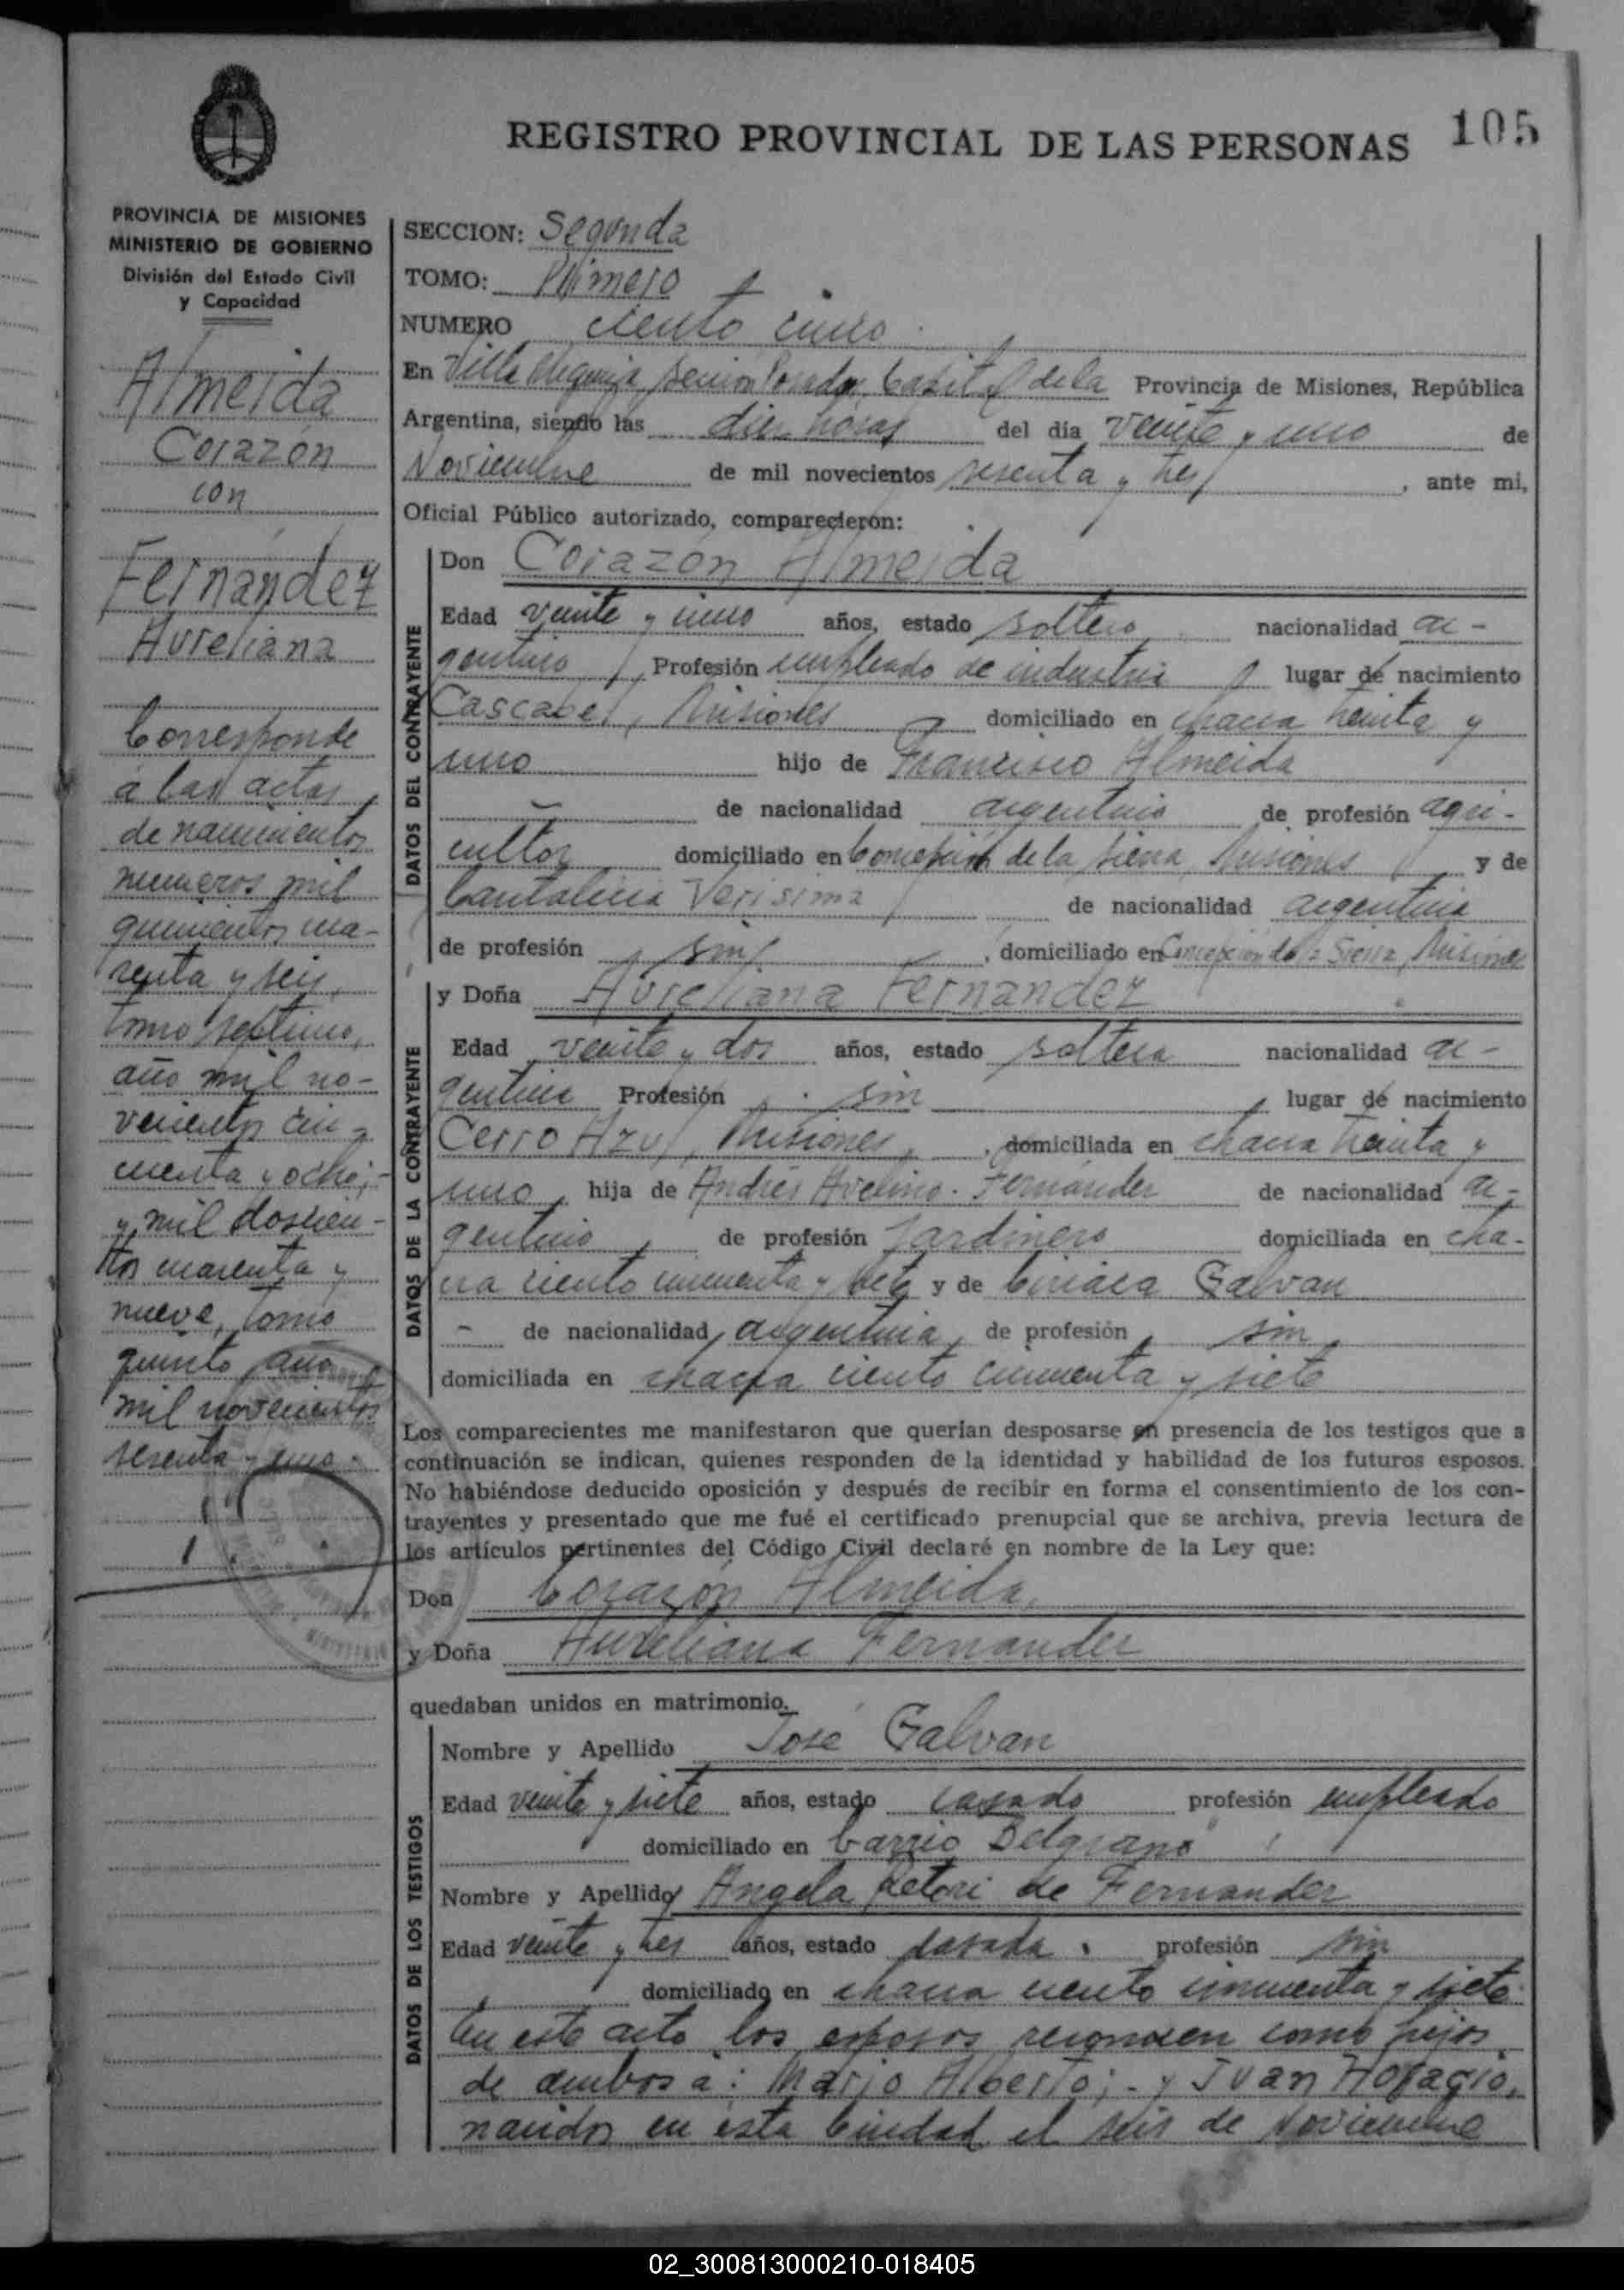 REGISTRO PROVINCIAL DE LAS PERSONAS 105
PROVINCIA DE MISIONES
MINISTERIO DE GOBIERNO
División del Estado Civil
y Capacidad
Almeida
Corazón
con
Fernández
Aureliana
Corresponde
a las actas
de nacimientos
números mil
quinientos cua-
renta y seis,
tomo séptimo,
año mil no-
vecientos cin-
cuenta y ocho;-
y mil doscien-
tos cuarenta y
nueve, tomo
quinto, año
mil novecientos
sesenta y uno.
SECCION: Segunda
TOMO: Primero
NUMERO ciento cinco
En Villa Urquiza, sección Posadas, Capital de la Provincia de Misiones, República
Argentina, siendo las diez horas del día veinte y uno de
Noviembre de mil novecientos sesenta y tres, ante mi,
Oficial Público autorizado, comparecieron:
DATOS DEL CONTRAYENTE
Don Corazón Almeida
Edad veinte y cinco años, estado soltero, nacionalidad ar-
gentino, Profesión empleado de industria, lugar de nacimiento
Cascabel, Misiones domiciliado en chacra treinta y
uno hijo de Francisco Almeida
de nacionalidad argentino de profesión agri-
cultor domiciliado en Concepción de la Sierra, Misiones y de
Cantalicia Verisima de nacionalidad argentina
de profesión sin, domiciliado en Concepción de la Sierra, Misiones
DATOS DE LA CONTRAYENTE
y Doña Aureliana Fernandez
Edad veinte y dos años, estado soltera nacionalidad ar-
gentina Profesión sin, lugar de nacimiento
Cerro Azul, Misiones, domiciliada en chacra treinta y
uno, hija de Andrés Avelino Fernández de nacionalidad ar-
gentino, de profesión Jardinero domiciliada en cha-
cra ciento cincuenta y siete y de Ciriaca Galvan
- de nacionalidad argentina, de profesión sin,
domiciliada en chacra ciento cincuenta y siete
Los comparecientes me manifestaron que querían desposarse en presencia de los testigos que a
continuación se indican, quienes responden de la identidad y habilidad de los futuros esposos.
No habiéndose deducido oposición y después de recibir en forma el consentimiento de los con-
trayentes y presentado que me fué el certificado prenupcial que se archiva, previa lectura de
los artículos pertinentes del Código Civil declaré en nombre de la Ley que:
Don Corazón Almeida,
y Doña Aureliana Fernandez
quedaban unidos en matrimonio.
DATOS DE LOS TESTIGOS
Nombre y Apellido José Galvan
Edad veinte y siete años, estado casado profesión empleado
domiciliado en barrio Belgrano
Nombre y Apellido Angela de Fernandez
Edad veinte y tres años, estado casada. profesión sin
domiciliado en chacra ciento cincuenta y siete.
En este acto los esposos reconocen como hijos
de ambos a: Mario Alberto;- y Juan Horacio,
nacidos en esta Ciudad el seis de Noviembre
02_300813000210-018405